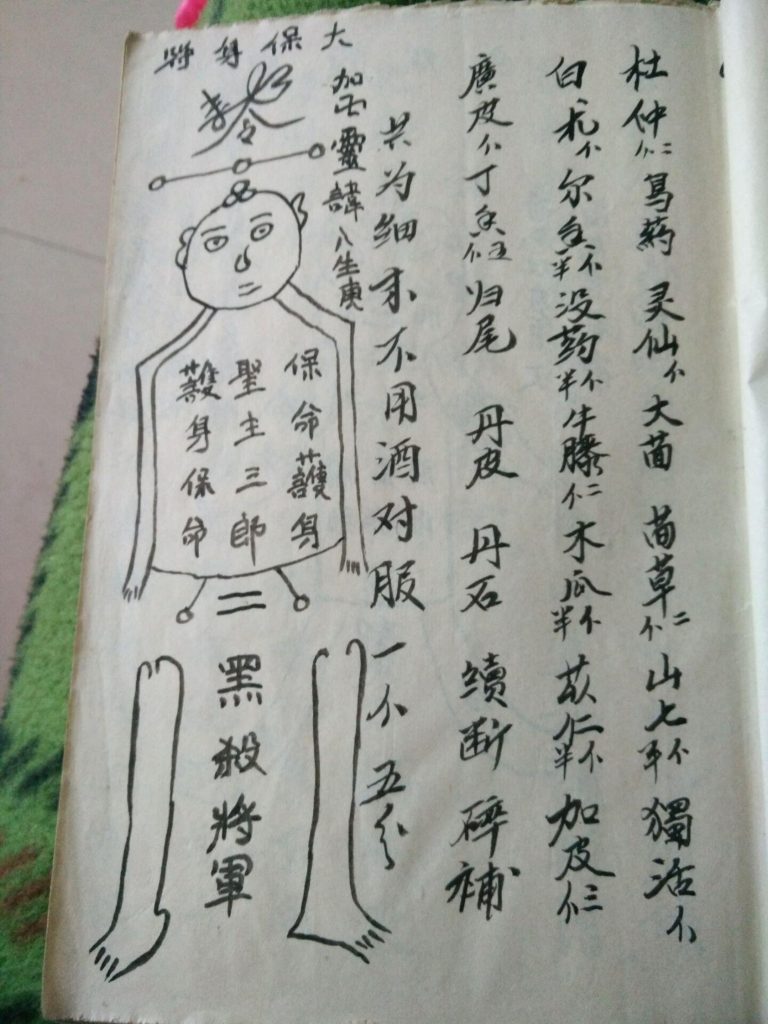 杜仲个二 灵仙个 大茴 茴草个二 山七半个 獨活个
白朮个 尔香半个 没药半个 牛膝个二 木瓜半个 苡仁半个 加皮个三
廣皮个 丁香个五 归尾 丹皮 丹石 續断 碎補
共为细末不用酒对服一个五分
大保身將
加正靈諱八生庚
保命護身
聖主三郎
護身保命
黑殺將軍